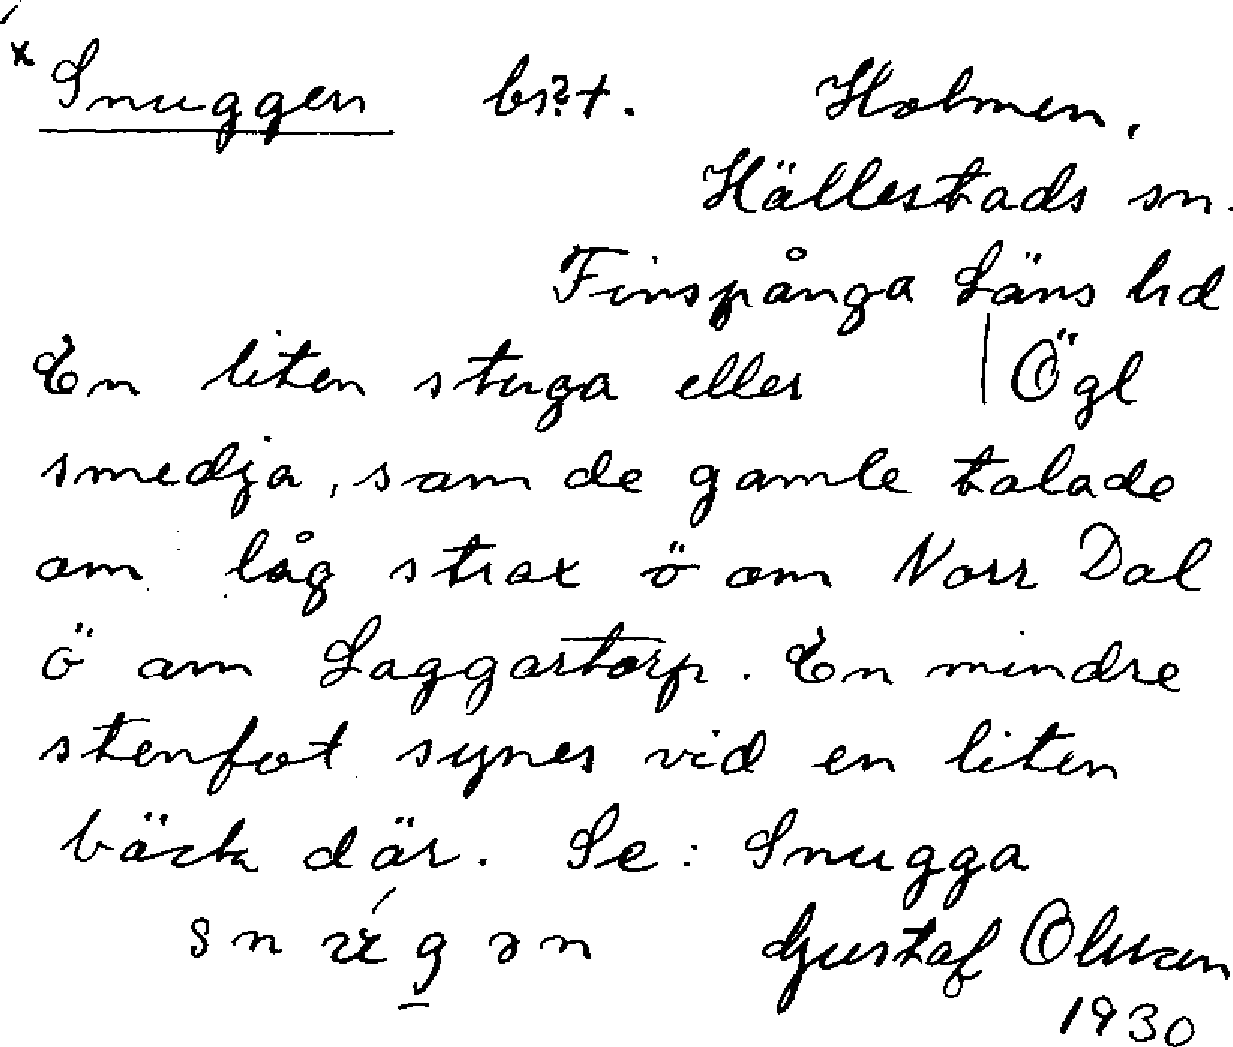 x Snuggen bs?t. Holmen,
Hällestads sn.
Finspånga Läns hd
En liten stuga eller | Ögl
smedja, som de gamle talade
om låg strax ö om Norr Dal
ö om Laggartorp. En mindre
stenfot synes vid en liten
bäck där. Se: Snugga
Gustaf Olsson
1930